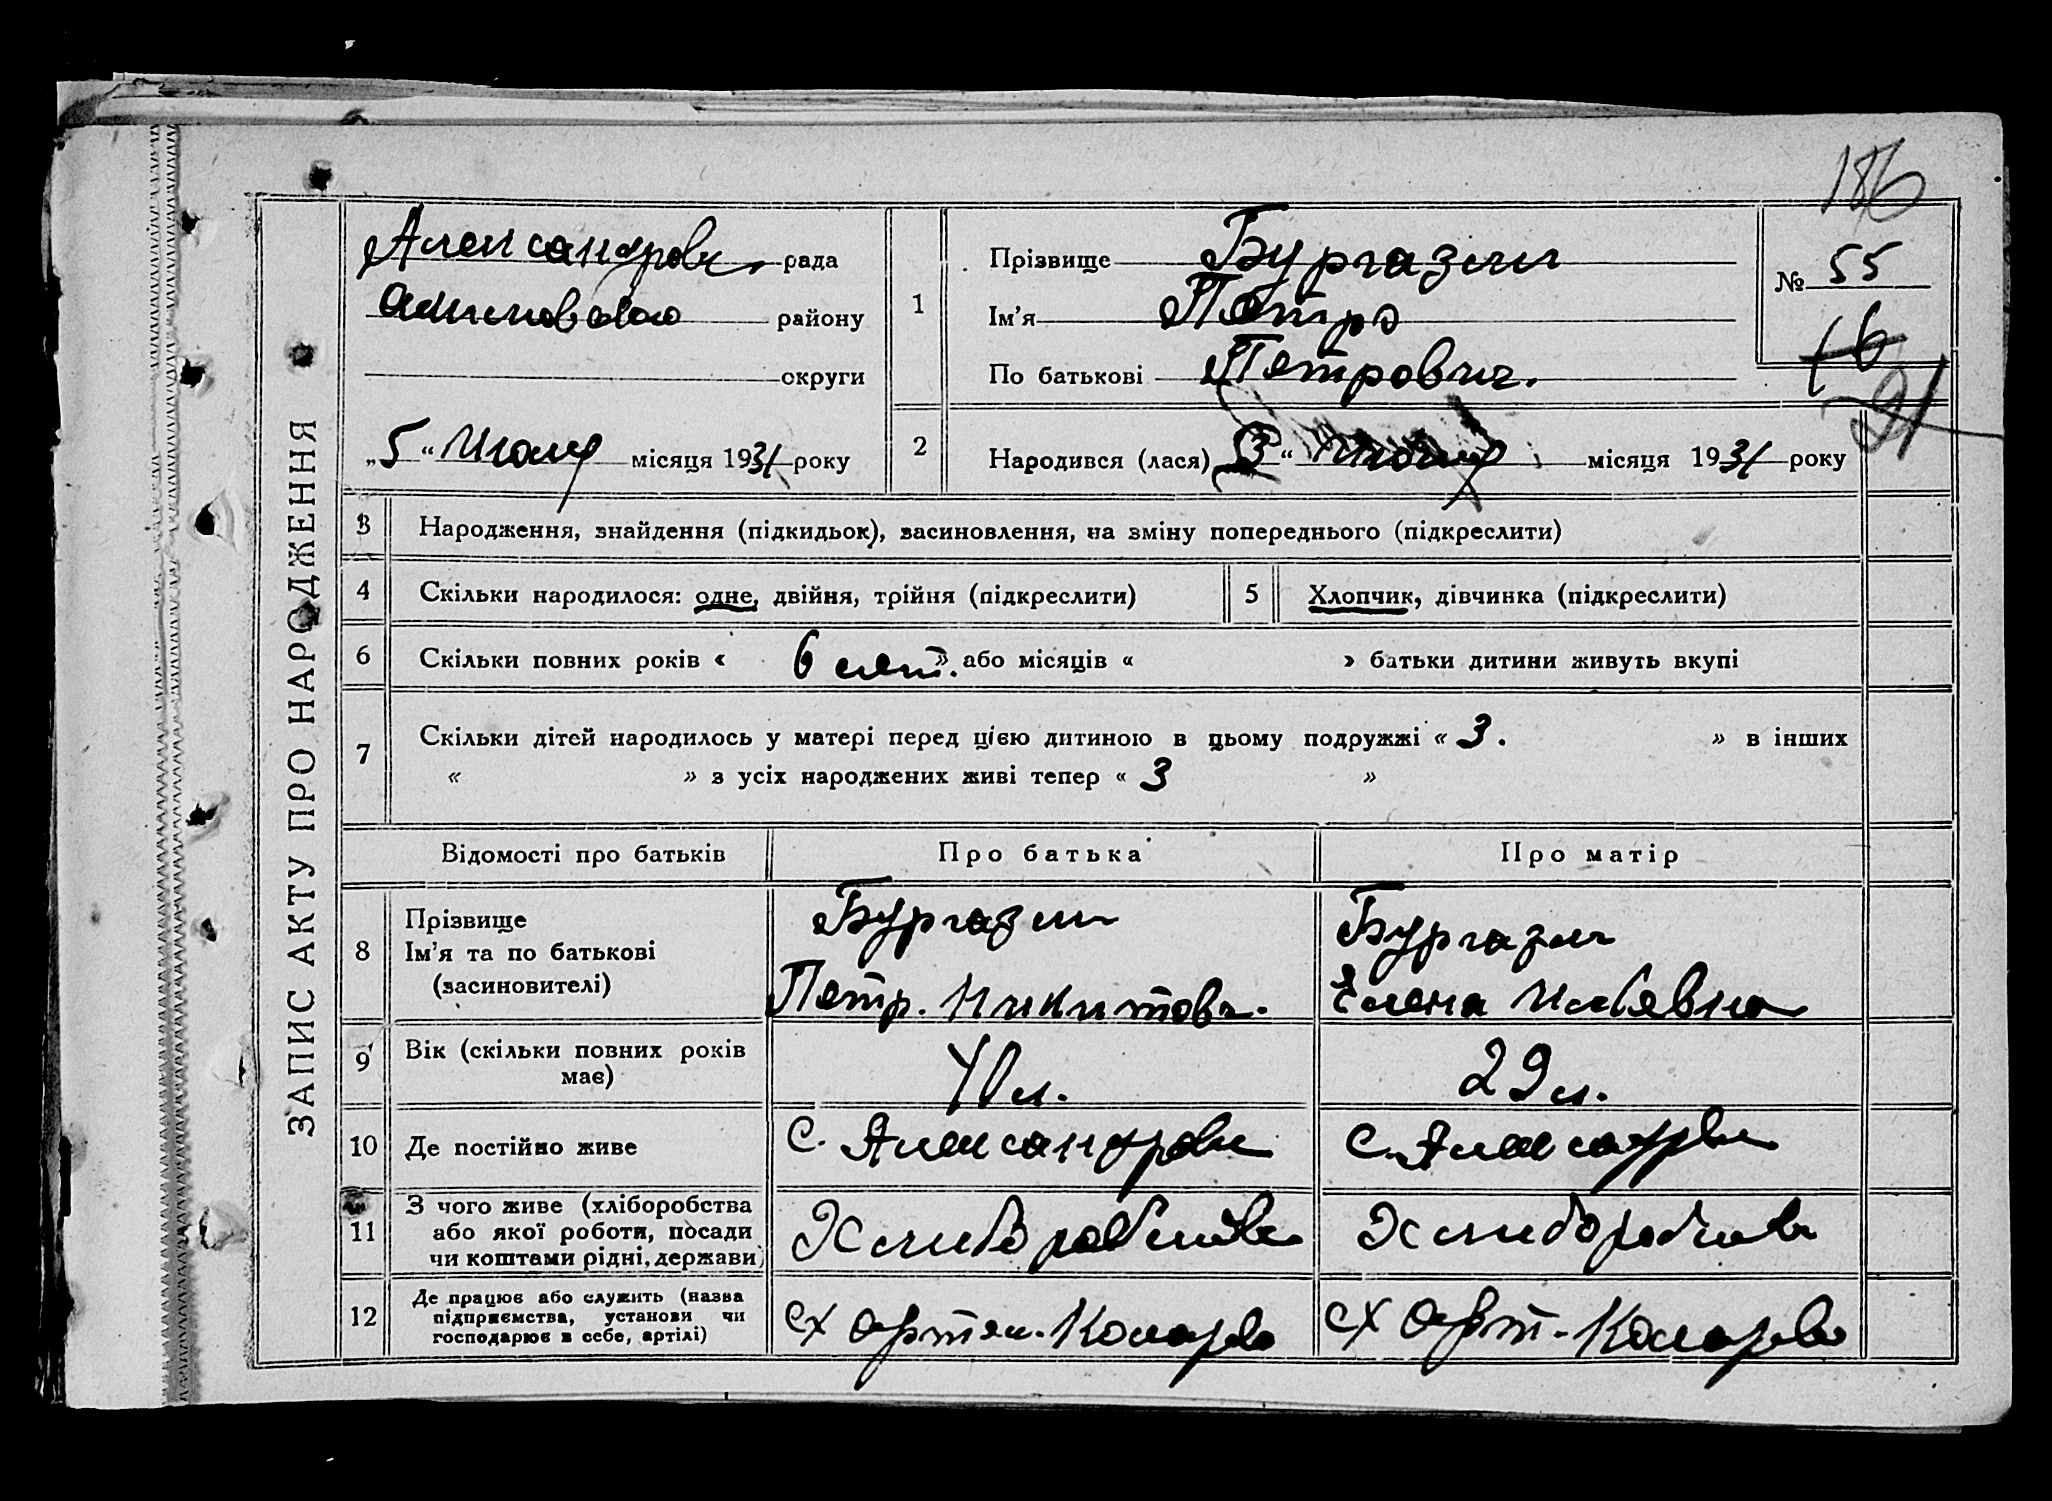 186
Александровк. рада
Акимовского району
округи
„5“ Июля місяця 1931 року
1
Прізвище Бургазли
Ім’я Петро
По батькові Петрович.
№ 55
16
21
2
Народився (лася) 3 “ Июля місяця 1931 року
ЗАПИС АКТУ ПРО НАРОДЖЕННЯ
3 Народження, знайдення (підкидьок), засиновлення, на зміну попереднього (підкреслити)
4 Скільки народилося: одне, двійня, трійня (підкреслити) 5 Хлопчик, дівчинка (підкреслити)
6 Скільки повних років « 6 лет. » або місяців « » батьки дитини живуть вкупі
7 Скільки дітей народилось у матері перед цією дитиною в цьому подружжі « 3. » в інших
« » з усіх народжених живі тепер « 3 »
Відомості про батьків Про батька Про матір
8 Прізвище
Ім’я та по батькові
(засиновителі)
Бургазли
Петр. Никитов.
Бургазли
Елена Ильевна
9 Вік (скільки повних років
має)
40 л.
29 л.
10 Де постійно живе
с. Александровк
с. Александровк
11 З чого живе (хліборобства
або якої роботи, посади
чи коштами рідні, держави)
Хлиборобства
Хлиборобства
12 Де працює або служить (назва
підприємства, установи чи
господарює в себе, артілі)
сх артел. Коларова
сх арт. Коларова